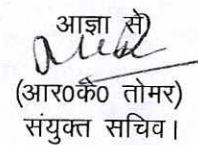 आज्ञा से)
(आर0के0 तोमर)
संयुक्त सचिव।